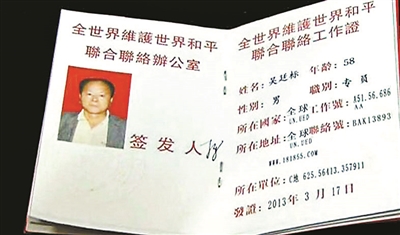 全世界維護世界和平
聯合聯絡辦公室
签发人
全世界維護世界和平
聯合聯絡工作證
姓名:吴廷标 年龄:58
性别:男 職别:专員
所在國家:全球工作號:A51.56.686
UN.UED AA
所在地址:全球聯絡號:BAK13893
UN.UED
www.181855.COM
所在單位:C地 625.56413.357911
發證:2013年3月17日